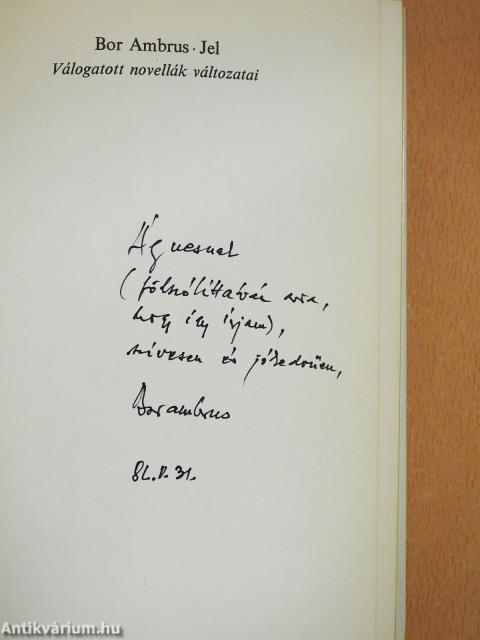 Bor Ambrus · Jel
Válogatott novellák változatai
Ágnesnek
(fölszólíttatván arra,
hogy így írjam),
szívesen és jókedvűen,
Bor ambrus
82. V. 31.
Antikvárium.hu